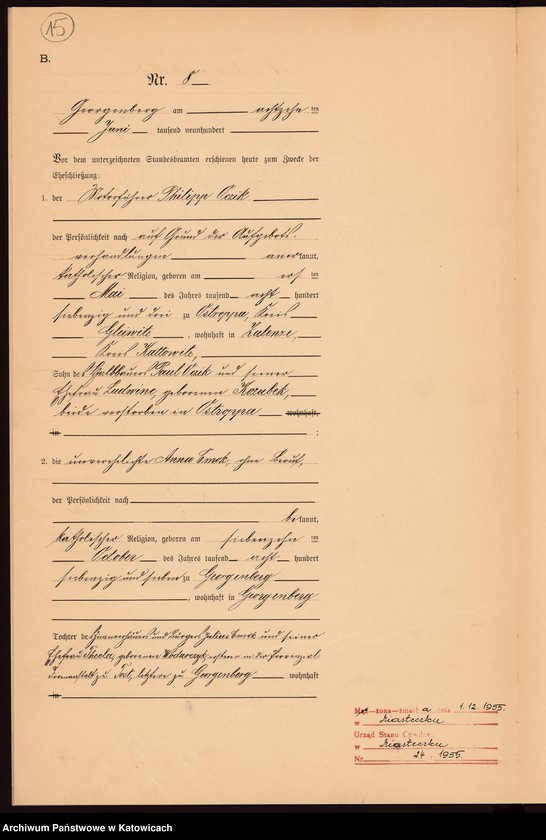 15
B.
Nr. 8
Georgenberg am achtzehnten
Juni tausend neunhundert
Vor dem unterzeichneten Standesbeamten erschienen heute zum Zwecke der
Eheschließung:
1. der Motorführer Philipp
der Persönlichkeit nach auf Grund der Aufgebots-
verhandlungen anerkannt,
katholischer Religion, geboren am ersten
Mai des Jahres tausend acht hundert
siebenzig und drei zu Ostroppa, Kreis
Gleiwitz, wohnhaft in Zalenze,
Kreis Kattowitz,
Sohn des Halbbauers Paul und seiner
Ehefrau Ludwine, geborenen Kozubek,
beide verstorben in Ostroppa wohnhaft,
in ;
2. die unverehelichte Anna Smok, ohne Beruf,
der Persönlichkeit nach
bekannt,
katholischer Religion, geboren am siebenzehnten
October des Jahres tausend acht hundert
siebenzig und sieben zu Georgenberg
, wohnhaft in Georgenberg
Tochter des und Bürgers Julius Smok und seiner
Ehefrau Thecla, geborenen Wodarczyk, ersterer in der Provinzial
Irrenanstalt zu Tost, letztere zu Georgenberg wohnhaft
in
żona zmarł a dnia 1.12.1955.
w Miasteczku
Urząd Stanu Cywilne
w Miasteczku
Nr. 24.1955.
Archiwum Państwowe w Katowicach